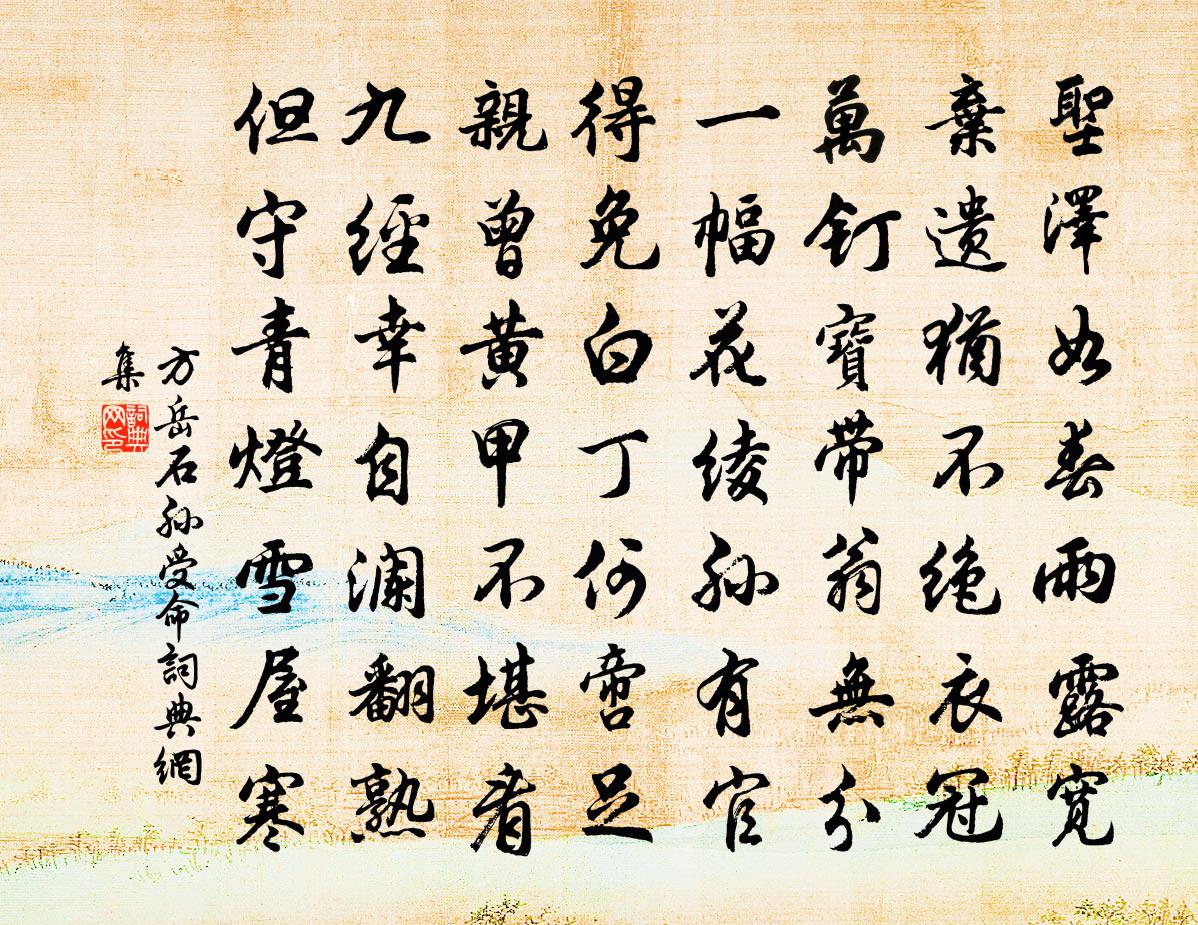 聖澤如春雨露寬
棄遺猶不絶衣冠
萬釘寶帶翁無分
一幅花綾孫有官
得免白丁何啻足
親曾黄甲不堪看
九經幸自瀾翻熟
但守青燈雪屋寒
方岳石孫受命詞典網
集
詞典
网印